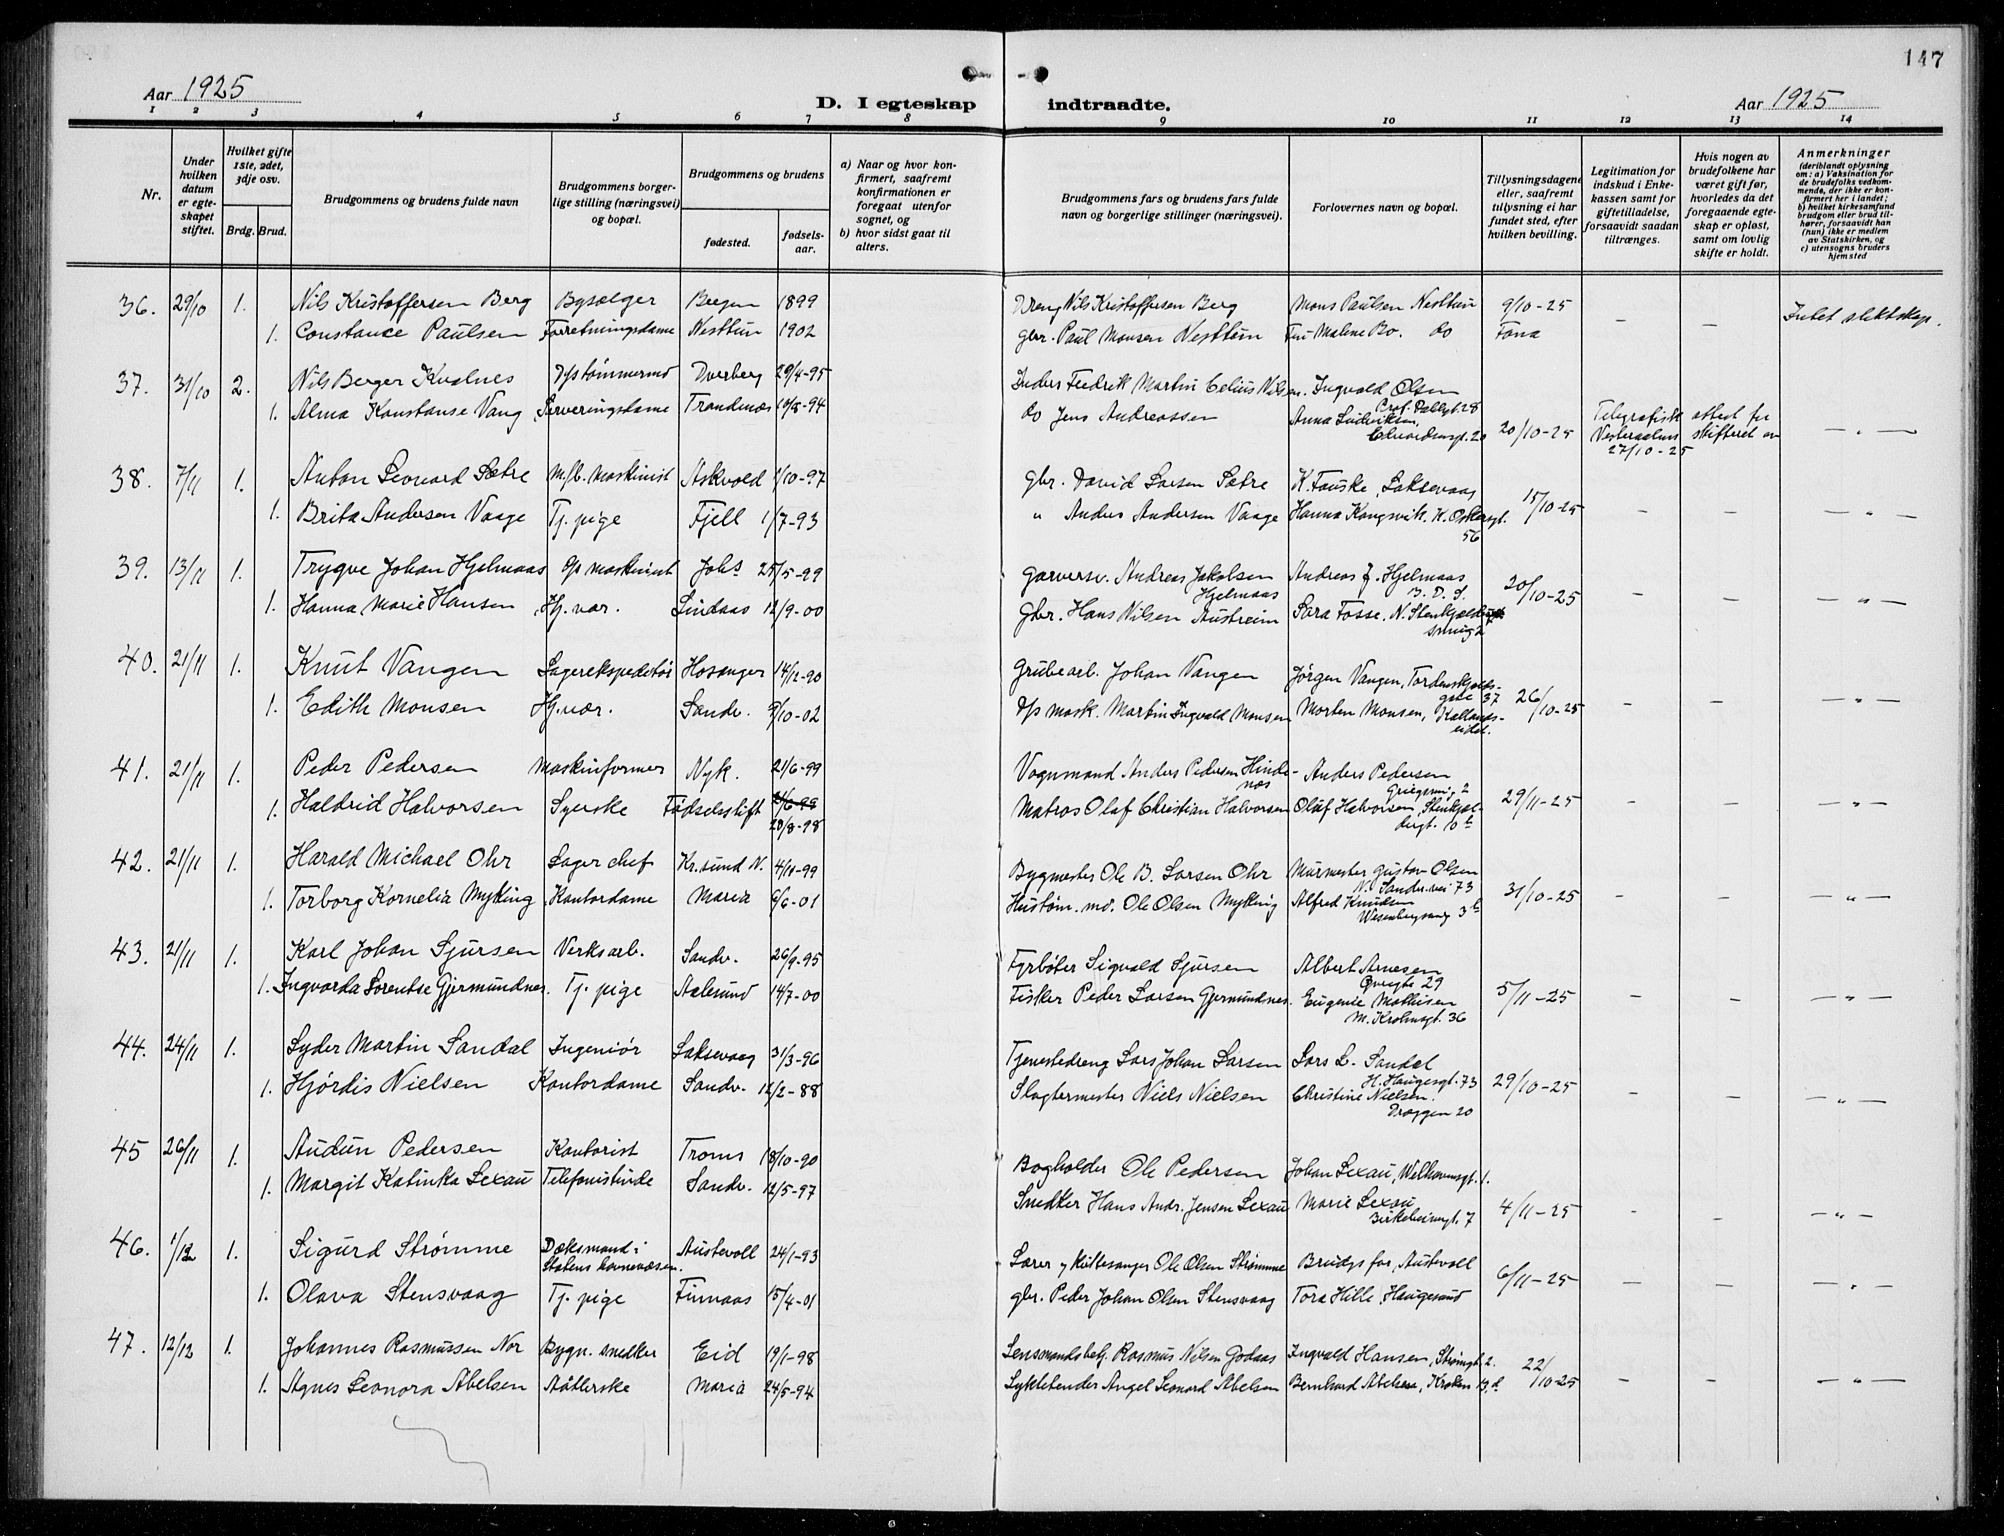 147
Aar 1925
D. I egteskap indtraadte.
Aar 1925
1 2 3 4 5 6 7 8 9 10 11 12 13 14
Nr.
Under hvilken datum er egteskapet stiftet.
Hvilket gifte 1ste, 2det, 3dje osv.
Brdg. Brud.
Brudgommens og brudens fulde navn
Brudgommens borgerlige stilling (næringsvei) og bopæl.
Brudgommens og brudens
fødested.
fødselsaar.
a) Naar og hvor konfirmert, saafremt konfirmationen er foregaat utenfor sognet, og
b) hvor sidst gaat til alters.
Brudgommens fars og brudens fars fulde navn og borgerlige stillinger (næringsvei).
Forlovernes navn og bopæl.
Tillysningsdagene eller, saafremt tillysning ei har fundet sted, efter hvilken bevilling.
Legitimation for indskud i Enkekassen samt for giftetilladelse, forsaavidt saadan tiltrænges.
Hvis nogen av brudefolkene har været gift før, hvorledes da det foregaaende egteskap er opløst, samt om lovlig skifte er holdt.
Anmerkninger
(deriblandt oplysning om: a) Vaksination for de brudefolks vedkommende, der ikke er konfirmert her i landet; b) hvilket kirkesamfund brudgom eller brud tilhører, forsaavidt han (hun) ikke er medlem av Statskirken, og c) utensogns bruders hjemsted
36. 29/10 1. Nils Kristoffersen Berg Bysælger Bergen 1899 Dreng Nils Kristoffersen Berg Mons Paulsen Nesttun 9/10-25 — — Intet slektskap.
1. Constance Paulsen Forretningsdame Nesttun 1902 Gbr. Paul Monsen Nesttun Fru Malene Bo. do Fana
37. 31/10 2. Nils Berger Kvalnes D/s tømmermd Dverberg 29/4-95 Inders Fredrik Martin Celius Nilsen. Ingvald Olsen
Prof. Dahlsgt. 28
1. Alma Konstanse Vang Serveringsdame Trondenæs 10/8-94 do Jens Andreassen Anna Ludviksen, Edvardsensgt. 20 20/10-25 Telegrafisk attest fr Vesteraalens skifteret av 27/10-25 — " —
38. 7/11 1. Anton Leonard Sætre M./b. maskinist Askvold 1/10-97 Gbr. David Larsen Sætre K. Fauske, Laksevaag 15/10-25 — — — " —
1. Brita Andersen Vaage Tj. pige Fjell 1/7-93 " Anders Andersen Vaage Hanna Kongsvik, K. Oskarsgt. 56
39. 13/11 1. Trygve Johan Hjelmaas D/s maskinist Johs 25/5-99 Garversv. Andreas Jakobsen Hjelmaas Andreas J. Hjelmaas B. D. S. 20/10-25 — — — " —
1. Hanna Marie Hansen Hj. vær. Lindaas 12/9-00 Gbr. Hans Nilsen Austreim Sara Fosse, N. Stenkjælder smug 2
40. 21/11 1. Knut Vangen Lagerekspeditør Hosanger 14/12-90 Grubearb. Johan Vangen Jørgen Vangen, Tordenskjolds-gate 37 26/10-25 — — — " —
1. Edith Monsen Hj. vær. Sandv. 9/10-02 D/s mask. Martin Ingvald Monsen Morten Monsen, Kallands-eidet.
41. 21/11 1. Peder Pedersen Maskinformer Nyk. 21/6-99 Vognmand Anders Pedersen Hinde-næs Anders Pedersen Griegsmug 2 29/11-25 — — — " —
1. Haldrid Halvorsen Syerske Fødselsstift 21/6-99 20/8-98 Matros Olaf Christian Halvorsen Oluf Halvorsen, Stenkjæl-dergt. 10 b
42. 21/11 1. Harald Michael Ohr Lager chef Kr.sund N. 4/11-99 Bygmester Ole B. Larsen Ohr Murmester Gustav Olsen N. Sandv.vei 73 31/10-25 — — — " —
1. Torborg Kornelia Myking Kontordame Maria 6/6-01 Hustøm. md. Ole Olsen Myking Alfred Knudsen Wesenbergsmug 3 b
43. 21/11 1. Karl Johan Sjursen Verksarb. Sandv. 26/9-95 Fyrbøter Sigvald Sjursen Albert Arnesen Øvregt 29 5/11-25 — — — " —
1. Ingvarda Lorentse Gjermundnes. Tj. pige Aalesund 14/7-00 Fisker Peder Larsen Gjermundnes. Eugenie Mathisen M. Krohnsgt. 36
44. 24/11 1. Lyder Martin Sandal Ingeniør Laksevaag 31/3-96 Tjenestedreng Lars Johan Larsen Lars L. Sandal H. Haugesgt. 73 29/10-25 — — — " —
1. Hjørdis Nielsen Kontordame Sandv. 12/2-88 Slagtermester Niels Nielsen Christine Nielsen. Dræggen 20
45 26/11 1. Audun Pedersen Kontorist Troms 18/10-90 Bogholder Ole Pedersen Johan Lexau, Welhavensgt. 1. 4/11-25 — — — " —
1. Margit Katinka Lexau Telefonistinde Sandv. 12/5-97 Snedker Hans Andr. Jensen Lexau Marie Lexau Birkebeinergt. 7
46. 1/12 1. Sigurd Strømme Dæksmand i Statens havnevæsen. Austevoll 24/1-93 Lærer og kirkesanger Ole Olsen Strømme Brudgs far, Austevoll 6/11-25 — — — " —
1. Olava Stensvaag Tj. pige Finnaas 15/4-01 Gbr. Peder Johan Olsen Stensvaag Tora Hille, Haugesund
47. 12/12 1. Johannes Rasmussen Nor Bygn. snedker Eid 19/1-98 Lensmandsbetj. Rasmus Nilsen Godaas Ingvald Hansen, Strømgt. 2. 22/10-25 — — — " —
1. Agnes Leonora Abelsen Aatlerske Maria 24/5-94 Lyktetender Angel Leonard Abelsen Bernhard Abelsen, Kroken 13. d.